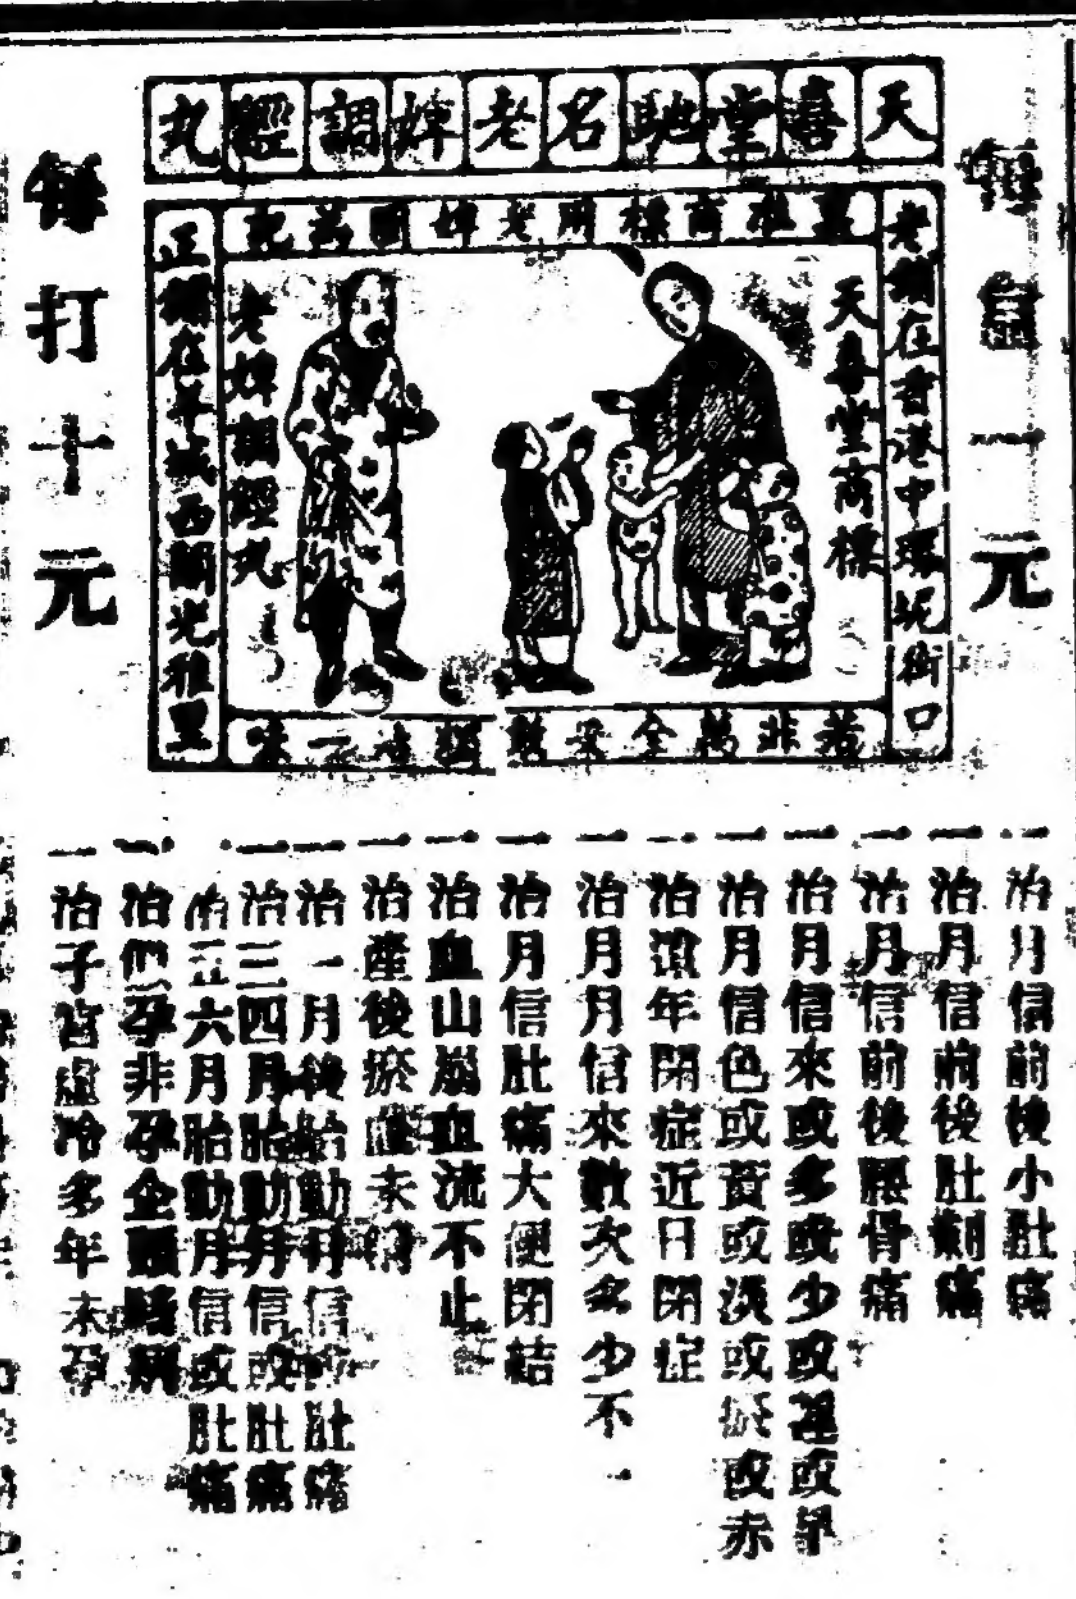 天喜堂馳名老婢調經丸
每自一元
老舖在香港中環坭街口
商標開老婢圖為記
天喜堂商標
老婢調經丸
正舖在羊城西關光雅里
每打十元
一治月信前後小肚痛
一治月信前後肚痛
一治月信前後腰骨痛
一治月信來或多或少或遲或早
一治月信色或黃或淡或瘀或赤
一治年閉症近日閉症
一治月月信來數次多少不一
一治月信肚痛大便閉結
一治血山崩血流不止
一治產後瘀血未清
一治一月後胎動月信或肚痛
一治三四月胎動月信或肚痛
一治五六月胎動月信或肚痛
一治似孕非孕企頭暗病
一治子宮虛冷多年未孕